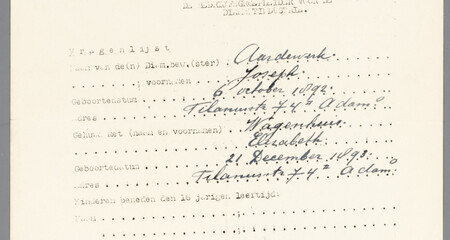 Vragenlijst
Naam van de(n) Diam.bew.(ster) . Aardewerk.
" voornamen . Joseph.
Geboortedatum . 6 october 1892.
Adres . Tilanusstr 74 II A'dam.
Gehuwd met (naam en voornamen) Wagenhuis.
Elisabeth.
Geboortedatum . 21 December 1893.
Adres . Tilanusstr 74 II A'dam.
Kinderen beneden den 16 jarigen leeftijd:
Naam